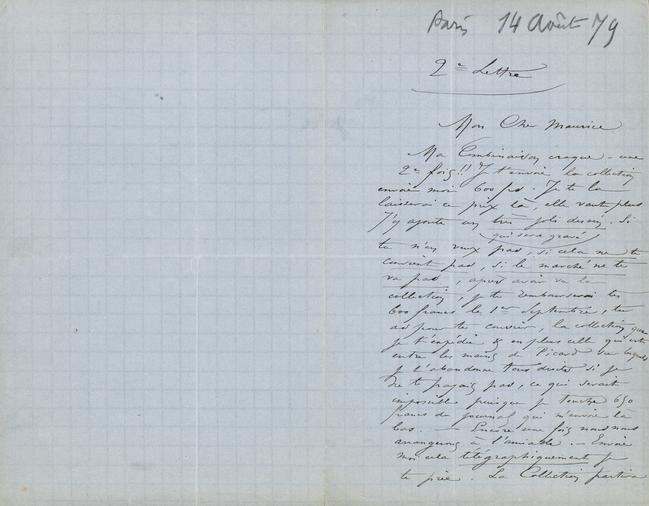 Paris 14 Août 79
2e Lettre
Mon Cher Maurice
Ma Combinaison craque - une
2e fois!! Je t'envoie la collection
envoie moi 600 frs. Je te la
laisserai ce prix là, elle vaut plus
J'y ajoute un très joli dessin. Si
(qui sera gravé)
tu n'en veux pas, si cela ne te
convient pas, si le marché ne te
va pas, après avoir vu la
collection, je te rembourserai tes
600 francs le 1er Septembre, tu
as pour te couvrir, la collection que
je t'expédie & en plus celle qui est
entre les mains de Picard sur laquelle
je t'abandonne tous droits si je
ne te payais pas, ce qui serait
impossible puisque je touche 650
francs du journal qui m'envoie là
bas. — Encore une fois nous nous
arrangerons à l'amiable. — Envoie
moi cela télégraphiquement je
te prie. La Collection partira